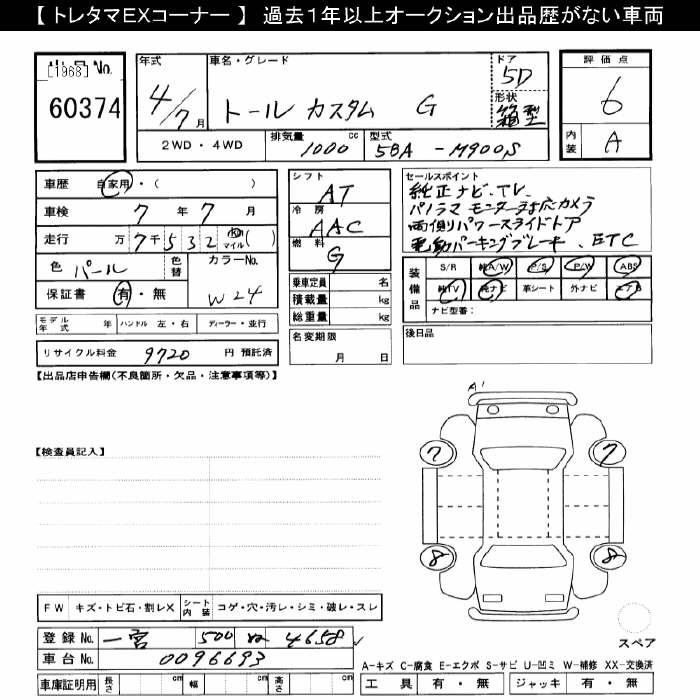 【 トレタマEXコーナー 】 過去1年以上オークション出品歴がない車両
[1968] No.
60374
年式
4/7月
車名・グレード
トール カスタム G
ドア
5D
形状
箱型
評価点
6
内装
A
2WD・4WD
排気量 1000 cc
型式 5BA - M900S
車歴 自家用・( )
車検 7 年 7 月
走行 万 7 千 5 3 2 km マイル ( )
色 パール 色替 カラーNo. W24
保証書 有・無
シフト
AT
冷房
AAC
燃料
G
乗車定員 名
積載量 kg
総重量 kg
名変期限
月 日
セールスポイント
純正ナビ.TV.
パノラマモニター対応カメラ
両側パワースライドドア
電動パーキングブレーキ、ETC
装備品
S/R 純A/W P/S P/W ABS
純TV 純ナビ 革シート 外ナビ エアB
ナビ型番：
モデル年式 年 ハンドル 左・右 ディーラー・並行
リサイクル料金 9720 円 預託済
後日品
【出品店申告欄(不良箇所・欠品・注意事項等)】
A1
【検査員記入】
7
7
8
8
FW キズ・トビ石・割レX シート内装 コゲ・穴・汚レ・シミ・破レ・スレ
登録No. 一宮 500 ぬ 4658
車台No. 0096693
スペア
A-キズ C-腐食 E-エクボ S-サビ U-凹ミ W-補修 XX-交換済
車庫証明用 長さ cm 幅 cm 高さ cm
工具 有・無 ジャッキ 有・無